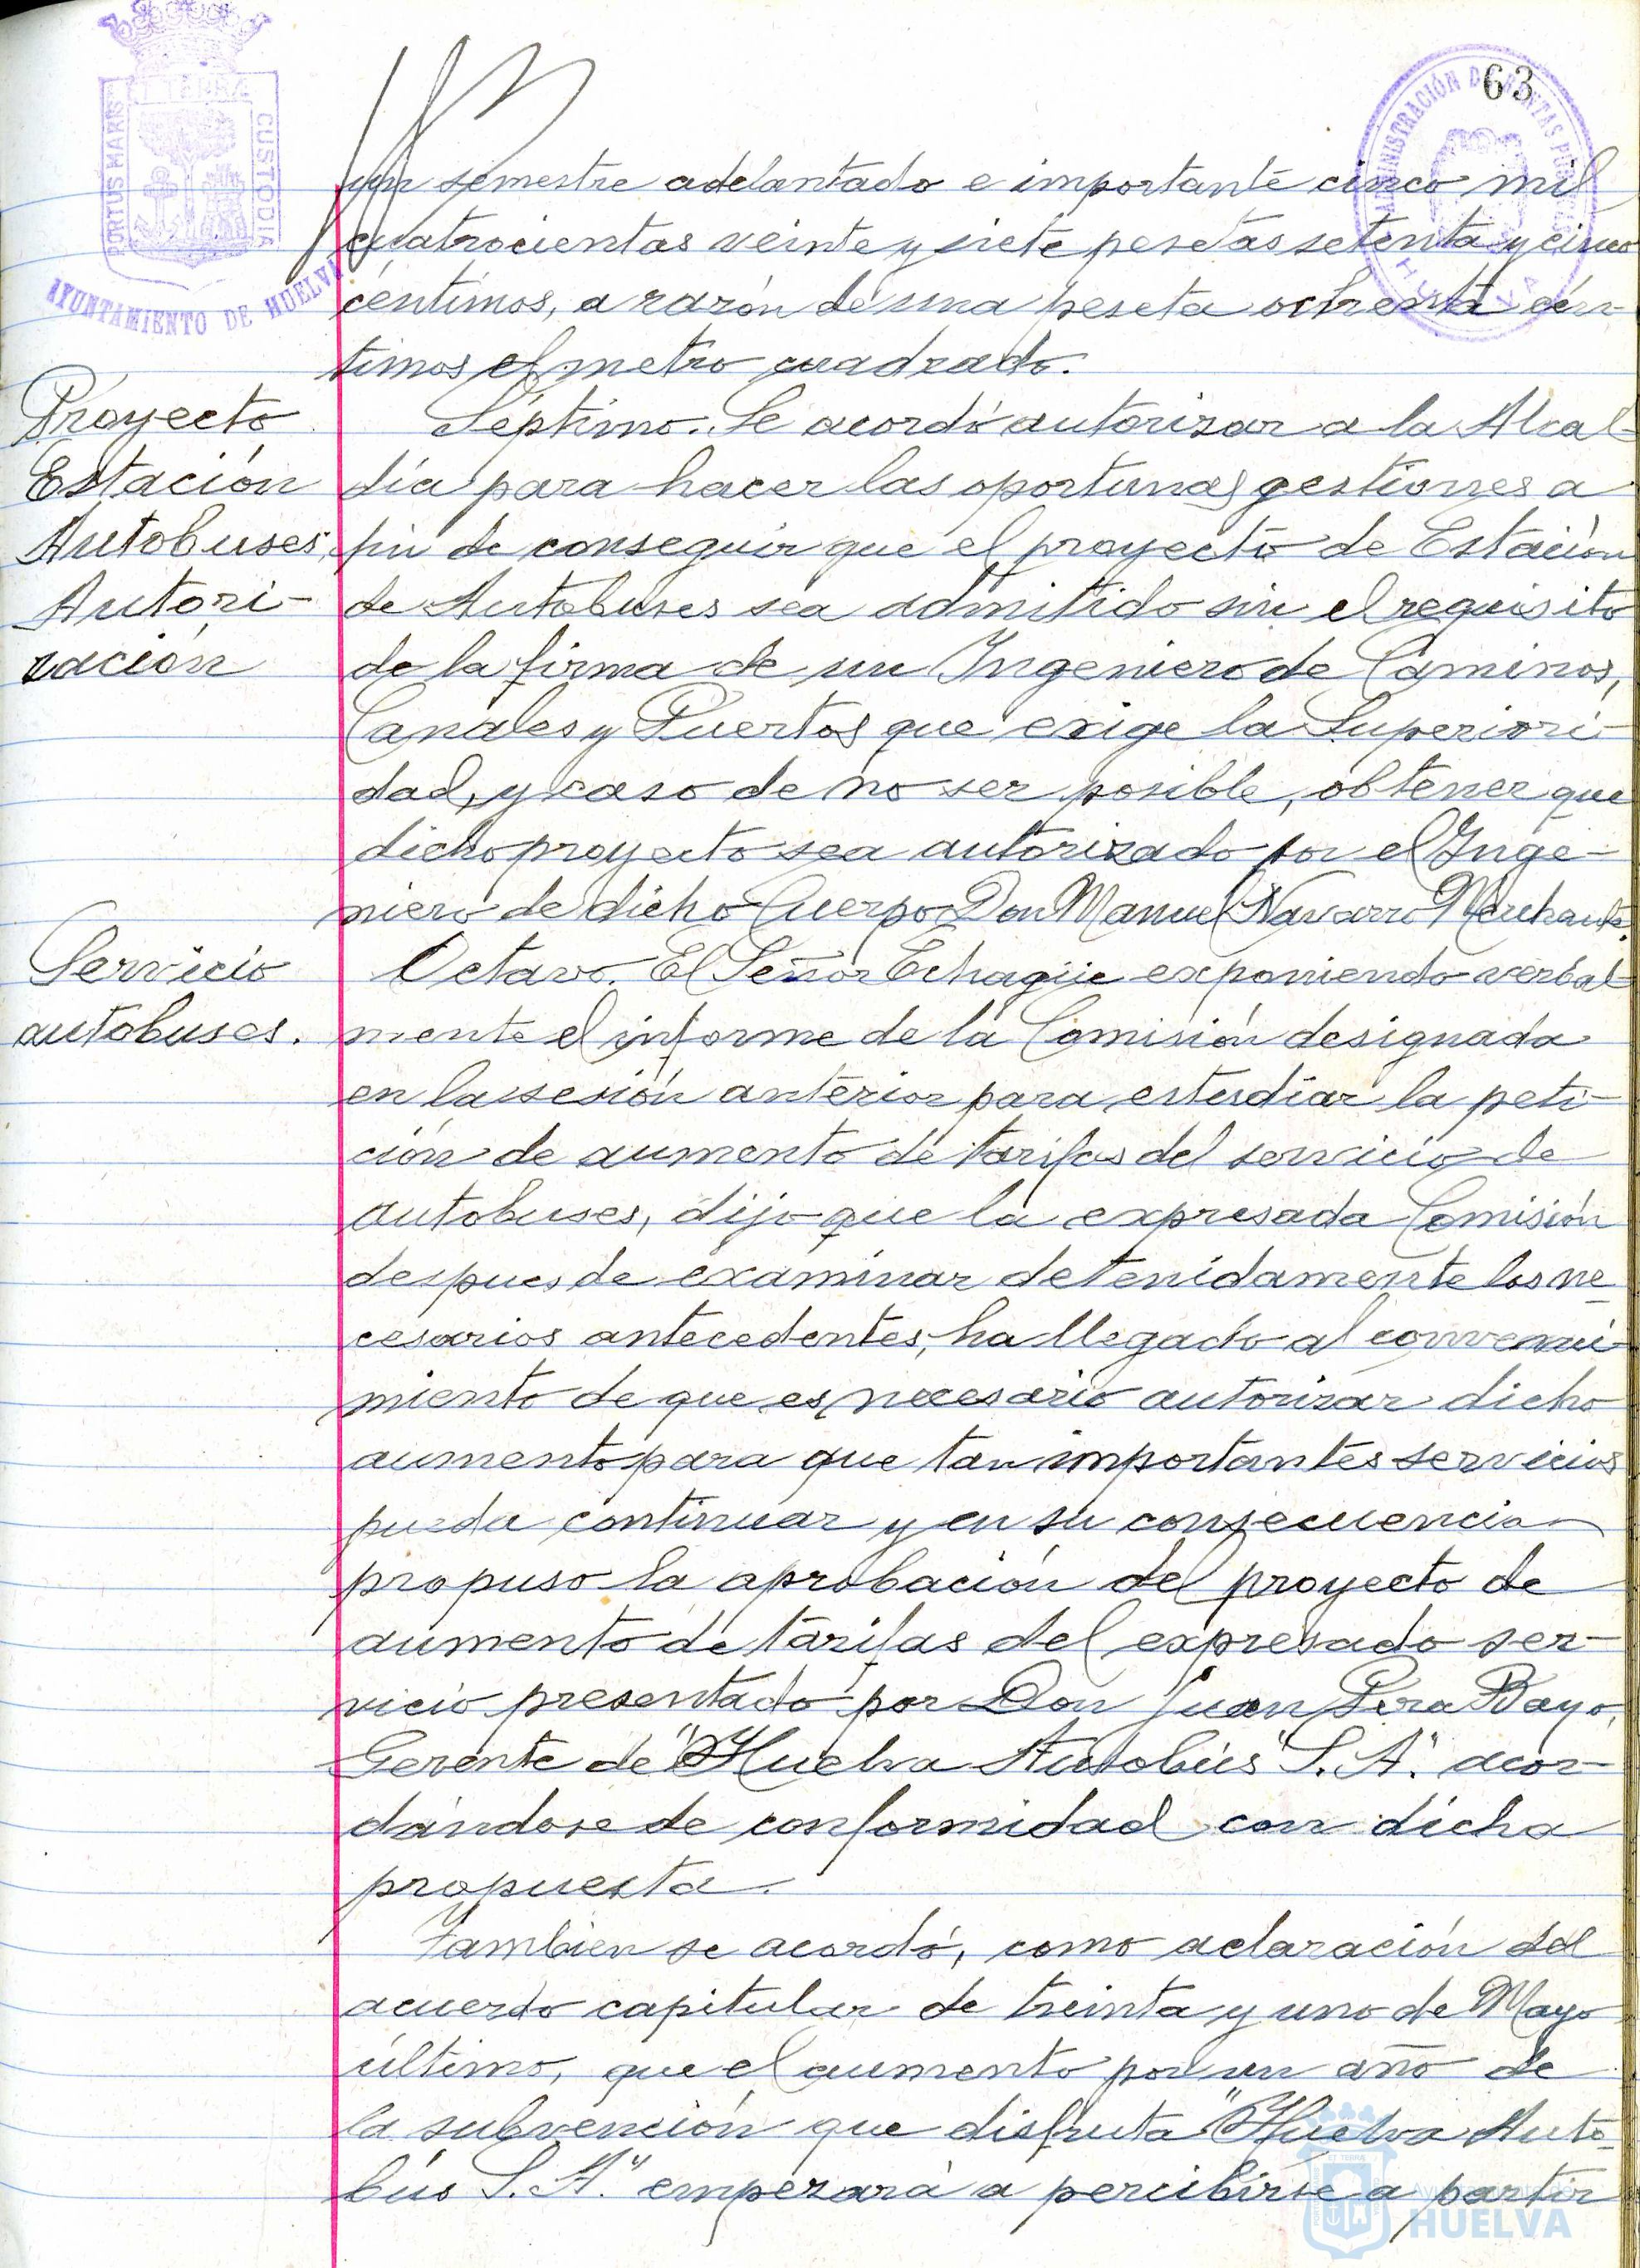 63
PORTUS MARIS ET TERRÆ CUSTODIA
AYUNTAMIENTO DE HUELVA
ADMINISTRACIÓN DE RENTAS PÚBLICAS
HUELVA
un semestre adelantado e importante cinco mil
cuatrocientas veinte y siete pesetas setenta y cinco
céntimos, a razón de una peseta ochenta cén-
timos el metro cuadrado.
Proyecto
Estación
Autobuses.
Autori-
zación
Séptimo. Se acordó autorizar a la Alcal-
día para hacer las oportunas gestiones a
fin de conseguir que el proyecto de Estación
de Autobuses sea admitido sin el requisito
de la firma de un Ingeniero de Caminos,
Canales y Puertos que exige la Superiori-
dad, y caso de no ser posible, obtener que
dicho proyecto sea autorizado por el Inge-
niero de dicho Cuerpo Don Manuel Navarro Merchante.
Servicio
autobuses.
Octavo. El Señor Echagüe exponiendo verbal-
mente el informe de la Comisión designada
en la sesión anterior para estudiar la peti-
ción de aumento de tarifas del servicio de
autobuses, dijo que la expresada Comisión
despues de examinar detenidamente los ne-
cesarios antecedentes, ha llegado al convenci-
miento de que es necesario autorizar dicho
aumento para que tan importantes servicios
pueda continuar y en su consecuencia
propuso la aprobación del proyecto de
aumento de tarifas del expresado ser-
vicio presentado por Don Juan Pera Bayo,
Gerente de "Huelva Autobús S.A." acor-
dándose de conformidad con dicha
propuesta.
Tambien se acordó, como aclaración del
acuerdo capitular de treinta y uno de Mayo
último, que el aumento por un año de
la subvención que disfruta "Huelva Auto-
bús S.A." empezará a percibirse a partir
HUELVA